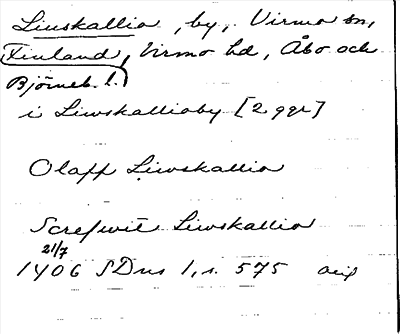 Liuskallio, by, Virmo sn,
Finland, Virmo hd, Åbo och
Björneb. l.
i Liwskallioby [2 ggr]
Olaff Liwskallio
Screfwit Liwskallio
21/7
1406 SDns 1, s. 575